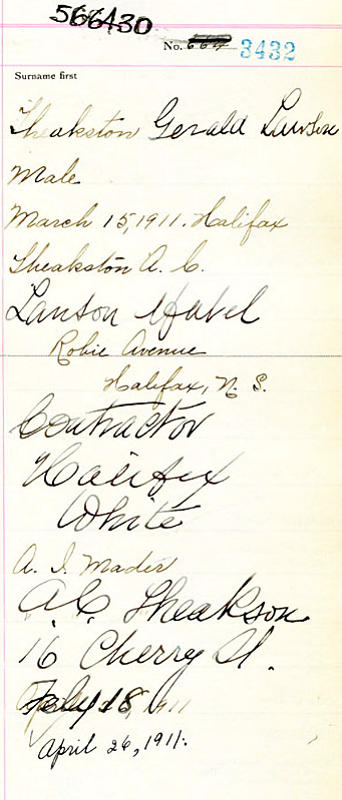 566430
No. 664 3432
Surname first
Theakston Gerald Lawson
Male
March 15, 1911. Halifax
Theakston A. C.
Lawson Hazel
Robie Avenue
Halifax, N. S.
Contractor
Halifax
White
A. I. Mader
A. C. Theakson
16 Cherry St.
July 18, 1911
April 26, 1911.